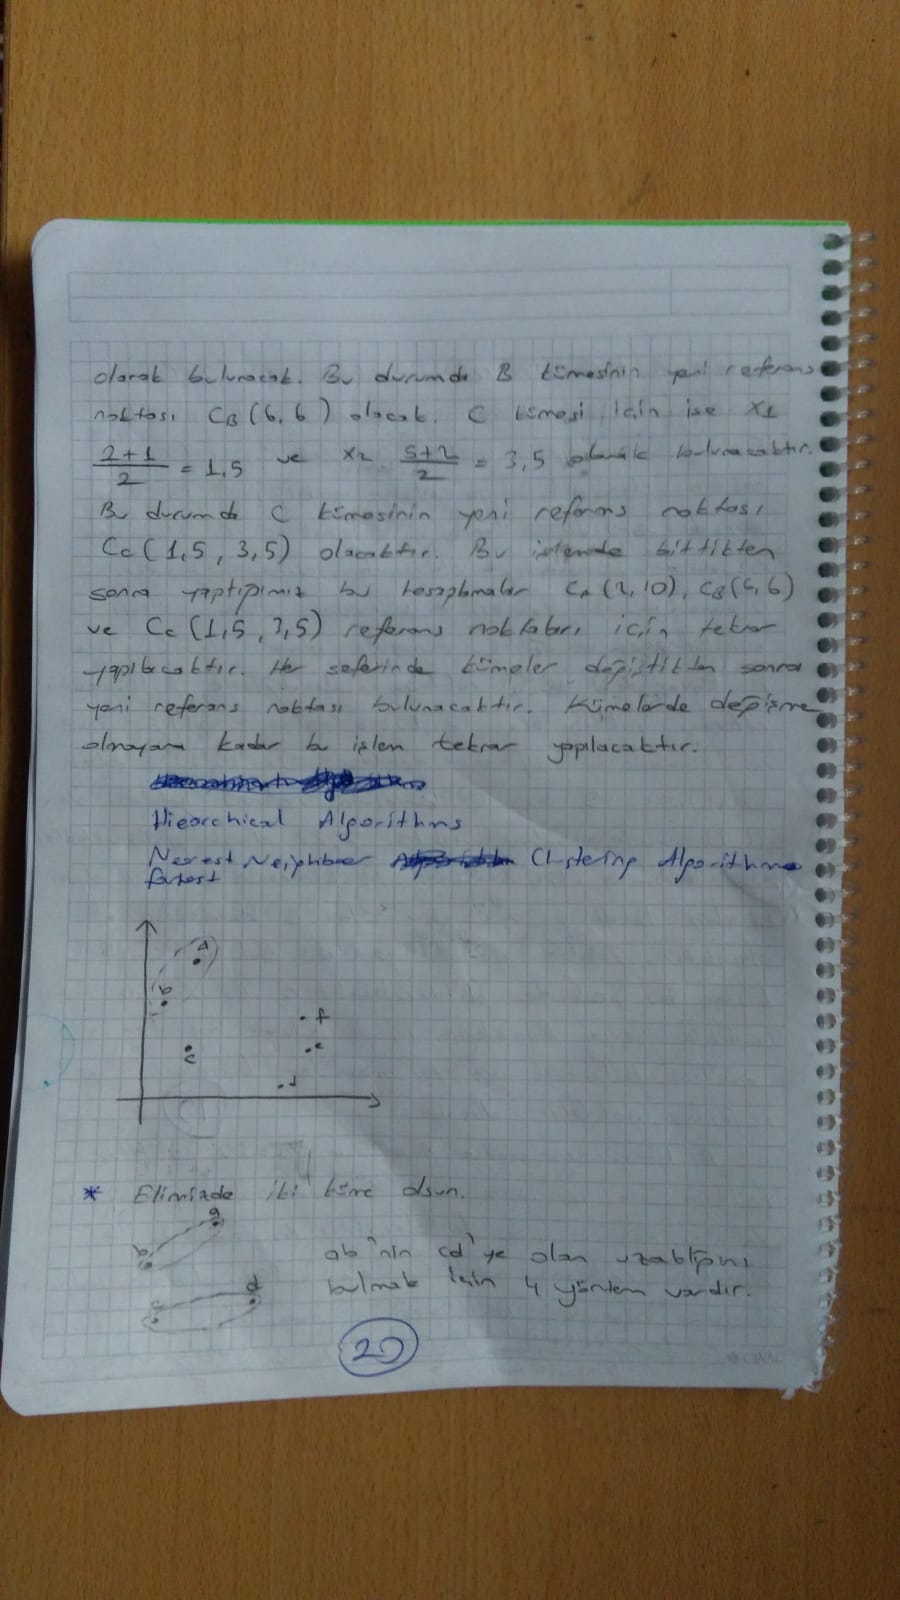 olarak bulunacak. Bu durumda B kümesinin yeni referans
noktası CB(6,6) olacak. C kümesi için ise x1
2+1/2 = 1,5 ve x2 5+2/2 = 3,5 olarak bulunacaktır.
Bu durumda C kümesinin yeni referans noktası
Cc(1,5, 3,5) olacaktır. Bu işlemde bittikten
sonra yaptığımız bu hesaplamalar CA(2,10), CB(6,6)
ve Cc(1,5, 3,5) referans noktaları için tekrar
yapılacaktır. Her seferinde kümeler değiştikten sonra
yeni referans noktası bulunacaktır. Kümelerde değişme
olmayana kadar bu işlem tekrar yapılacaktır.
Hiearchical Algorithms
Nearest Neighbor Clustering Algorithms
fartest
a
b
f
e
c
d
* Elimizde iki küme olsun.
a
b
ab'nin cd'ye olan uzaklığını
d
bulmak için 4 yöntem vardır.
c
20